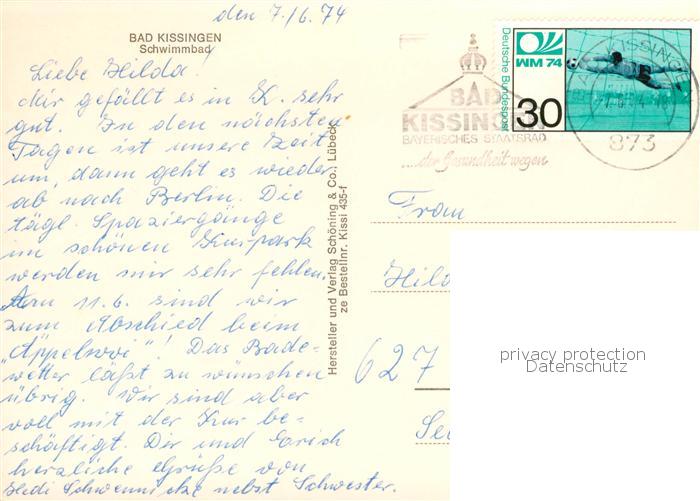 den 7./6. 74
BAD KISSINGEN
Schwimmbad
Liebe Hilda!
Mir gefällt es in K. sehr
gut. In den nächsten
Tagen ist unsere Zeit
um, dann geht es wieder
ab nach Berlin. Die
tägl. Spaziergänge
im schönen Kurpark
werden mir sehr fehlen.
Am 11.6. sind wir
zum Abschied beim
"Äppelwoi"! Das Bade-
wetter läßt zu wünschen
übrig. Wir sind aber
voll mit der Kur be-
schäftigt. Dir und Erich
herzliche Grüße von
Heidi Schwennicke nebst Schwester.
Hersteller und Verlag Schöning & Co., Lübeck
ze Bestellnr. Kissi 435-f
BAD
KISSINGEN
BAYERISCHES STAATSBAD
...der Gesundheit wegen
Deutsche Bundespost
WM 74
30
KISSINGEN
873
Frau
Hild
627
privacy protection
Datenschutz